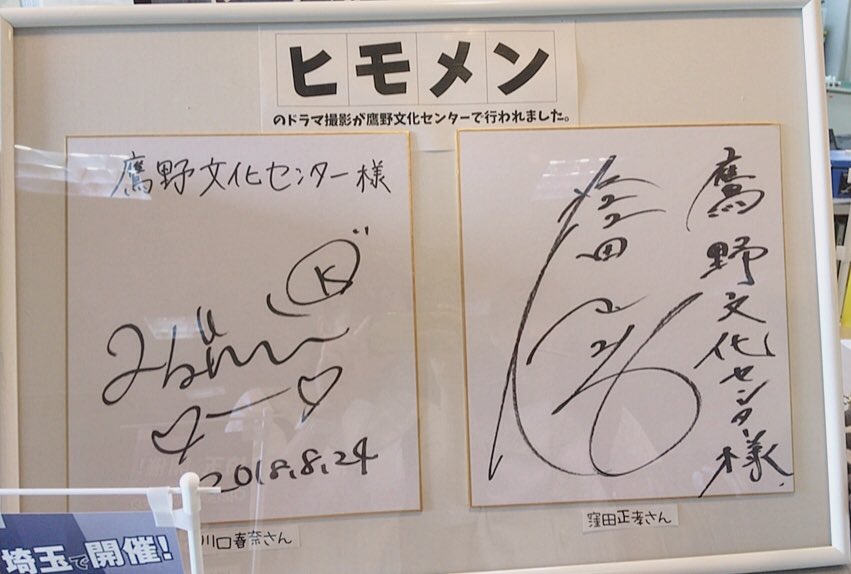 ヒモメン
のドラマ撮影が鷹野文化センターで行われました。
鷹野文化センター様
K
2018.8.24
鷹野文化センター様
窪田
川口春奈さん
窪田正孝さん
埼玉で開催!